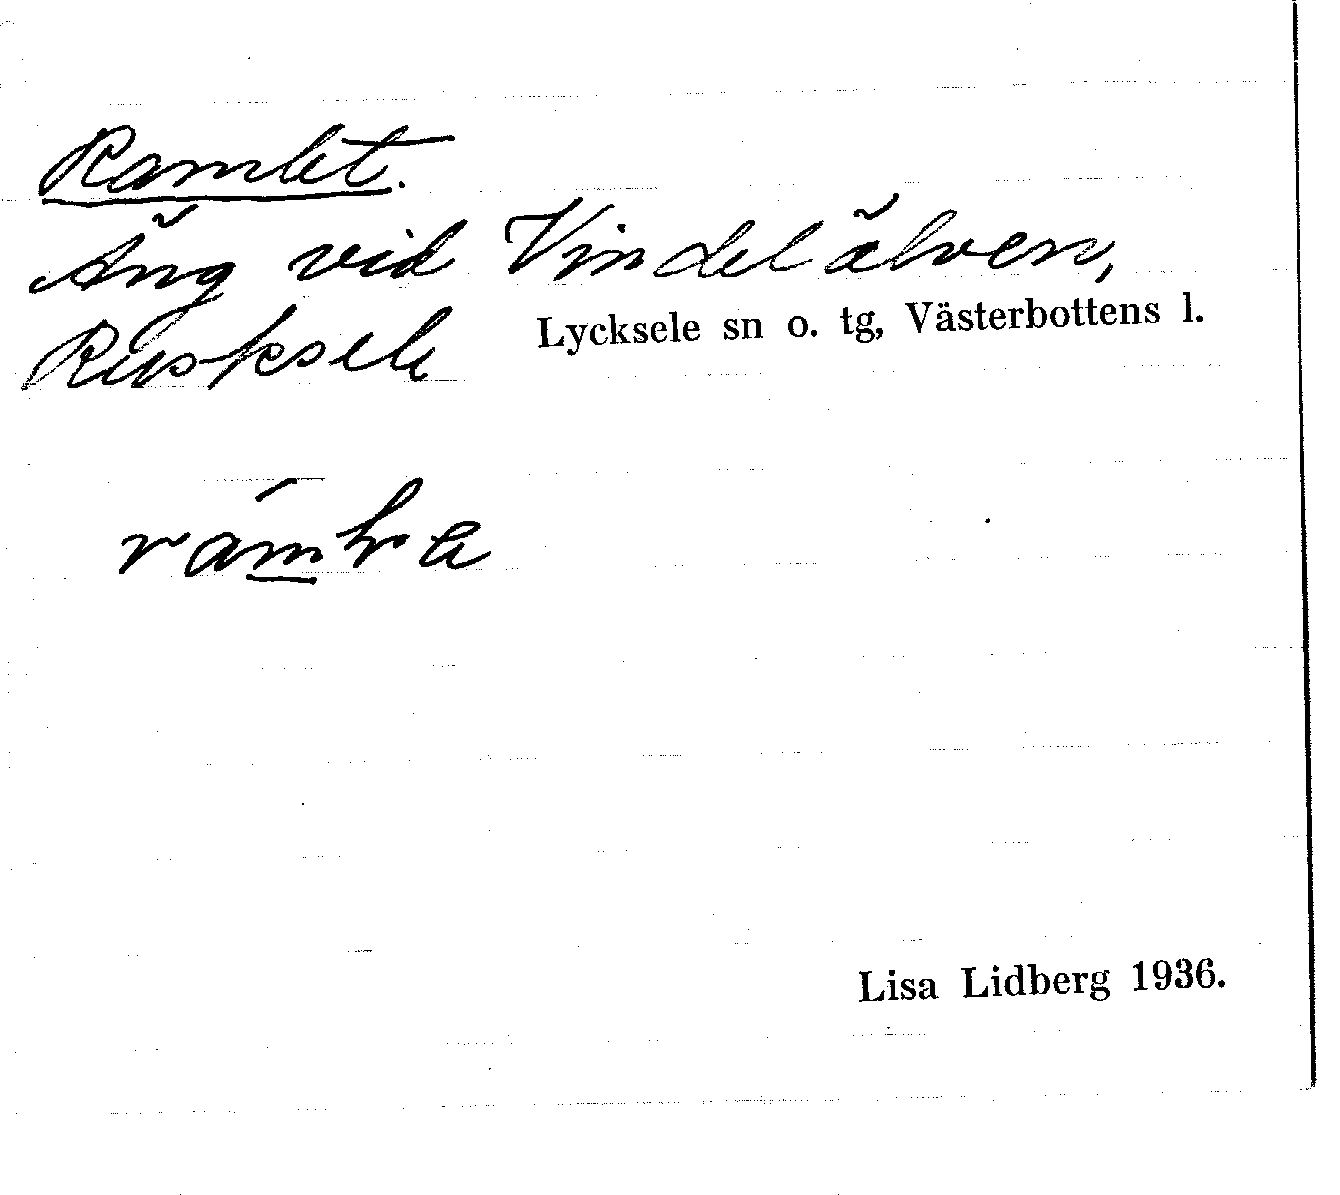 Ramlet.
Äng vid Vindelälven,
Rusksele Lycksele sn o. tg, Västerbottens l.
Lisa Lidberg 1936.